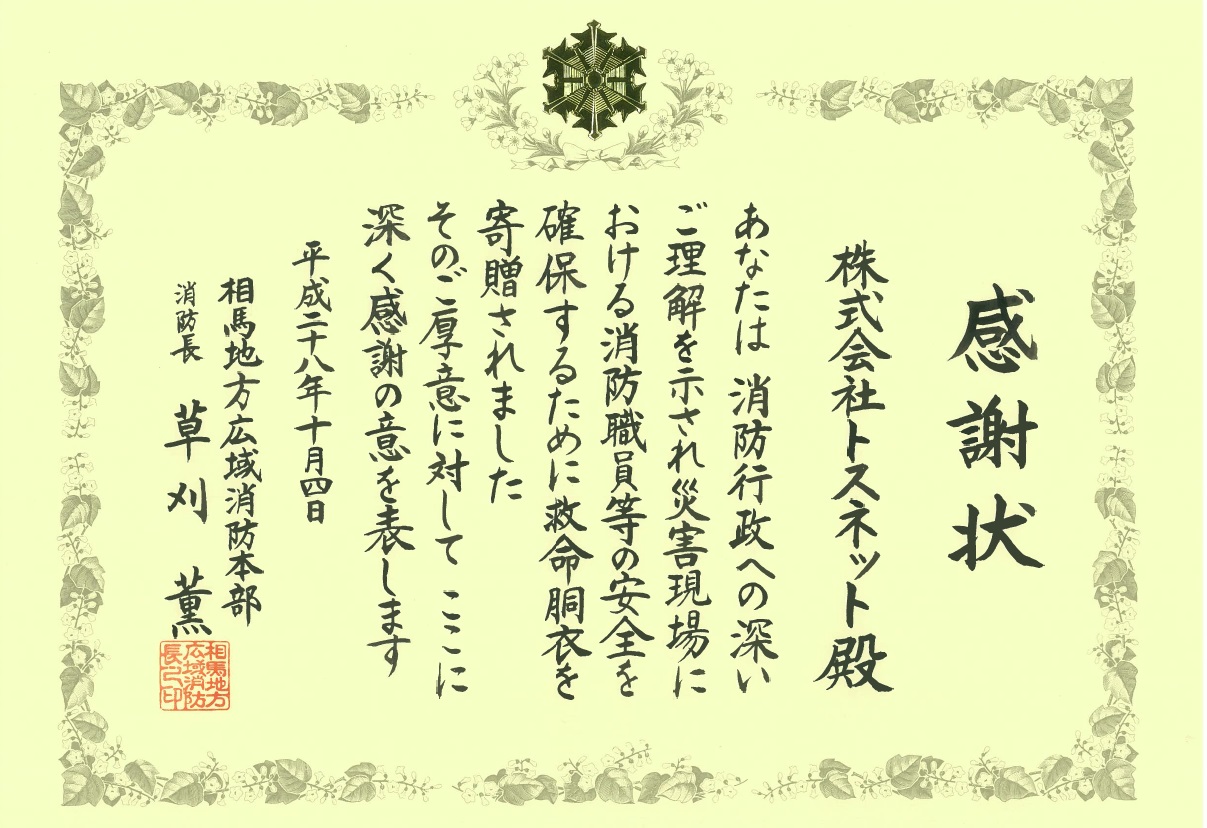 感謝状
株式会社トスネット殿
あなたは 消防行政への深い
ご理解を示され災害現場に
おける消防職員等の安全を
確保するために救命胴衣を
寄贈されました
そのご厚意に対して ここに
深く感謝の意を表します
平成二十八年十月四日
相馬地方広域消防本部
消防長 草刈 薫
相馬地方
広域消防
長之印